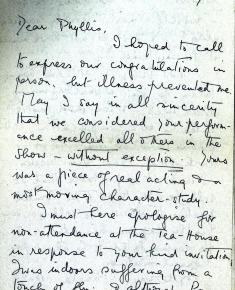 Dear Phyllis,
I hoped to call
to express our congratulations in
person, but illness prevented me.
May I say in all sincerity
that we considered your perform-
ance excelled all others in the
show - without exception. Yours
was a piece of real acting & a
most moving character-study.
I must here apologise for
non-attendance at the Tea-House
in response to your kind invitation.
I was indoors suffering from a
touch of flu. I